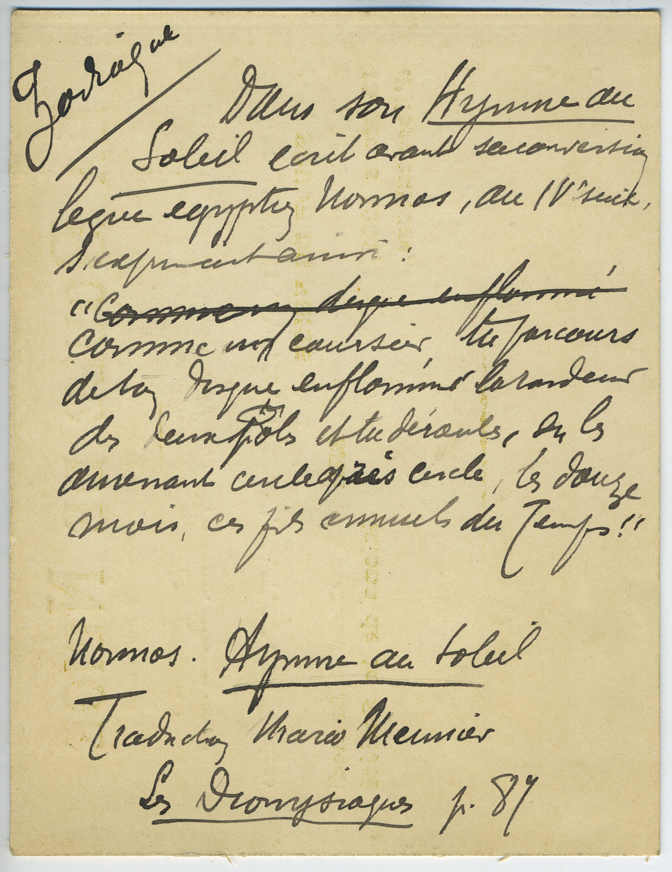 Zodiaque
Dans son Hymne au
Soleil écrit avant sa conversion
le grec egyptien Nonnos, au IVe siècle,
s'exprimait ainsi :
"Comme un disque enflammé
Comme un coursier, tu parcours
de ton disque enflammé la rondeur
des deux pôles et tu déroules, en les
amenant cercle après cercle, les douze
mois, ces fils annuels du Temps!"
Nonnos. Hymne au Soleil
Traduction Mario Meunier
Les Dionysiaques p. 87